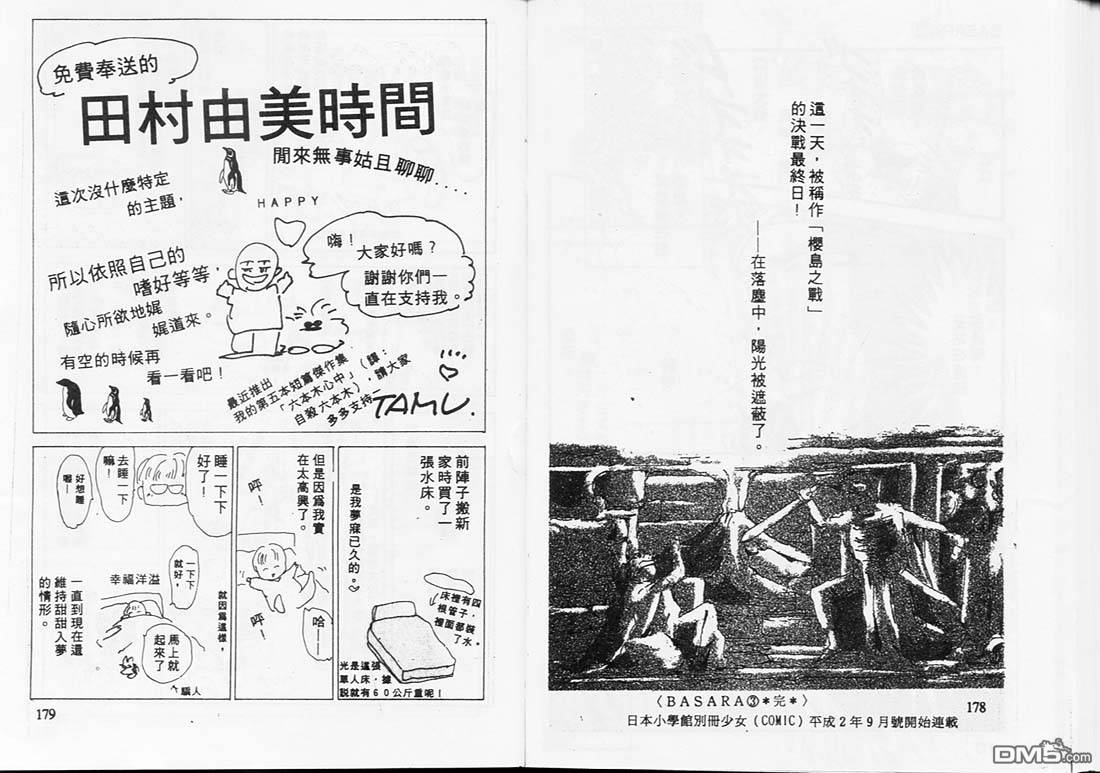 這一天，被稱作「櫻島之戰」
的決戰最終日！
——在落塵中，陽光被遮蔽了。
〈BASARA③＊完＊〉
日本小學館別冊少女（COMIC）平成2年9月號開始連載
178
免費奉送的
田村由美時間
閒來無事姑且聊聊‥‥
這次沒什麼特定
的主題，
HAPPY
嗨！
大家好嗎？
謝謝你們一
直在支持我。
所以依照自己的
嗜好等等，
隨心所欲地娓
娓道來。
有空的時候再
看一看吧！
最近推出
我的第五本短篇傑作集
「六本木心中」（譯：
自殺六本木），請大家
多多支持—
TAMU.
前陣子搬新
家時買了一
張水床。
是我夢寐已久的。
床裡有四
根管子，
裡面都裝
了水。
光是這張
單人床，據
說就有60公斤重呢！
但是因為我實
在太高興了。
呼！
呼！
哈——
睡一下下
好了！
去睡一下
嘛！
好想睡
喔—
就因為這樣，
一下下
就好，
幸福洋溢
馬上就
起來了
騙人
一直到現在還
維持甜甜入夢
的情形。
179
DM5.com